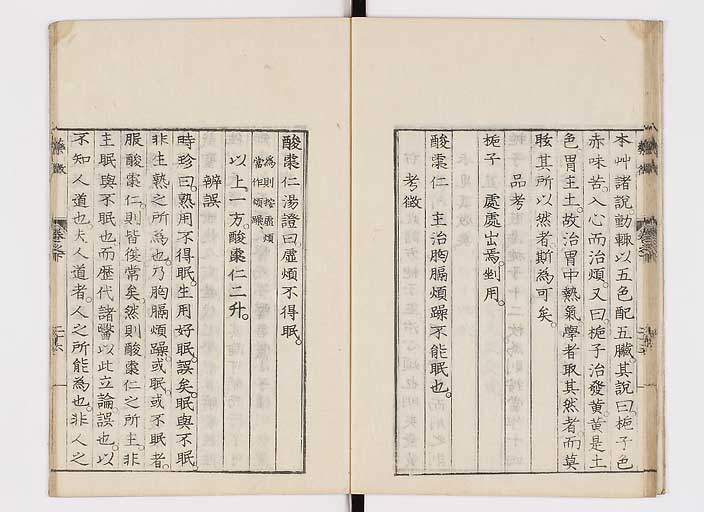 本艸諸說動輒以五色配五臟其說曰梔子色
赤味苦入心而治煩又曰梔子治發黃黃是土
色胃主土故治胃中熱氣學者取其然者而莫
眩其所以然者斯為可矣
品考
梔子 處處出焉剉用
酸棗仁 主治胸膈煩躁不能眠也
考徵
酸棗仁湯證曰虛煩不得眠
為則按虛煩
當作煩躁
以上一方酸棗仁二升
辨誤
時珍曰熟用不得眠生用好眠誤矣眠與不眠
非生熟之所為也乃胸膈煩躁或眠或不眠者
服酸棗仁則皆復常矣然則酸棗仁之所主非
主眠與不眠也而歷代諸醫以此立論誤也以
不知人道也夫人道者人之所能為也非人之